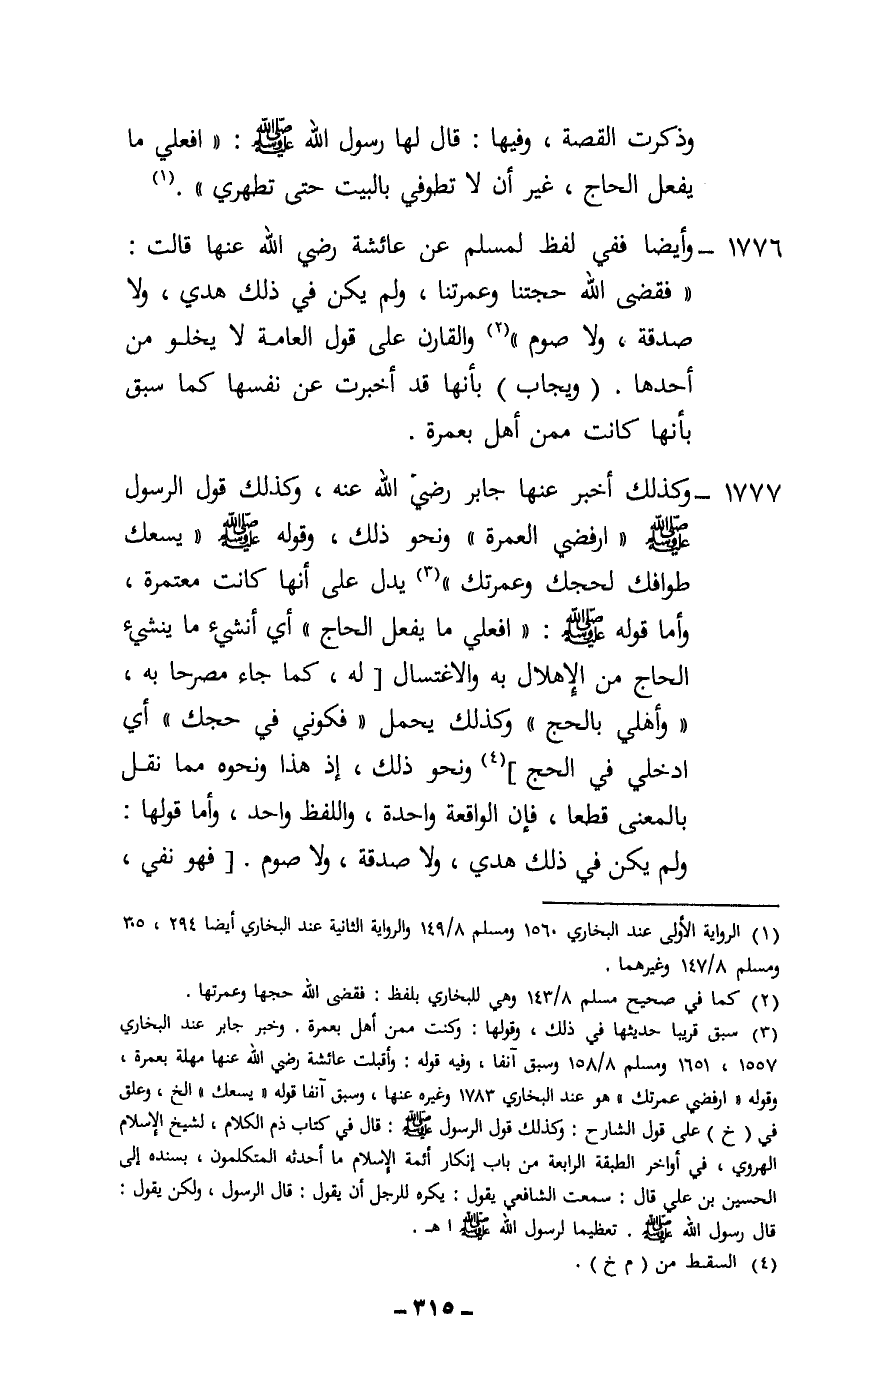 وذكرت القصة ، وفيها : قال لها رسول الله ﷺ : « افعلي ما
يفعل الحاج ، غير أن لا تطوفي بالبيت حتى تطهري » .(١)
١٧٧٦ ــ وأيضا ففي لفظ لمسلم عن عائشة رضي الله عنها قالت :
« فقضى الله حجتنا وعمرتنا ، ولم يكن في ذلك هدي ، ولا
صدقة ، ولا صوم »(٢) والقارن على قول العامة لا يخلو من
أحدها . ( ويجاب ) بأنها قد أخبرت عن نفسها كما سبق
بأنها كانت ممن أهل بعمرة .
١٧٧٧ ــ وكذلك أخبر عنها جابر رضي الله عنه ، وكذلك قول الرسول
ﷺ « ارفضي العمرة » ونحو ذلك ، وقوله ﷺ « يسعك
طوافك لحجك وعمرتك »(٣) يدل على أنها كانت معتمرة ،
وأما قوله ﷺ : « افعلي ما يفعل الحاج » أي أنشيء ما ينشيء
الحاج من الإهلال به والاغتسال [ له ، كما جاء مصرحا به ،
« وأهلي بالحج » وكذلك يحمل « فكوني في حجك » أي
ادخلي في الحج ](٤) ونحو ذلك ، إذ هذا ونحوه مما نقل
بالمعنى قطعا ، فإن الواقعة واحدة ، واللفظ واحد ، وأما قولها :
ولم يكن في ذلك هدي ، ولا صدقة ، ولا صوم . [ فهو نفي ،
(١) الرواية الأولى عند البخاري ١٥٦٠ ومسلم ١٤٩/٨ والرواية الثانية عند البخاري أيضا ٢٩٤ ، ٣٠٥
ومسلم ١٤٧/٨ وغيرهما .
(٢) كما في صحيح مسلم ١٤٣/٨ وهي للبخاري بلفظ : فقضى الله حجها وعمرتها .
(٣) سبق قريبا حديثها في ذلك ، وقولها : وكنت ممن أهل بعمرة . وخبر جابر عند البخاري
١٥٥٧ ، ١٦٥١ ومسلم ١٥٨/٨ وسبق آنفا ، وفيه قوله : وأقبلت عائشة رضي الله عنها مهلة بعمرة ،
وقوله « ارفضي عمرتك » هو عند البخاري ١٧٨٣ وغيره عنها ، وسبق آنفا قوله « يسعك » الخ ، وعلق
في ( خ ) على قول الشارح : وكذلك قول الرسول ﷺ : قال في كتاب ذم الكلام ، لشيخ الإسلام
الهروي ، في أواخر الطبقة الرابعة من باب إنكار أئمة الإسلام ما أحدثه المتكلمون ، بسنده إلى
الحسين بن علي قال : سمعت الشافعي يقول : يكره للرجل أن يقول : قال الرسول ، ولكن يقول :
قال رسول الله ﷺ . تعظيما لرسول الله ﷺ ا هـ .
(٤) السقط من ( م خ ) .
ــ ٣١٥ ــ